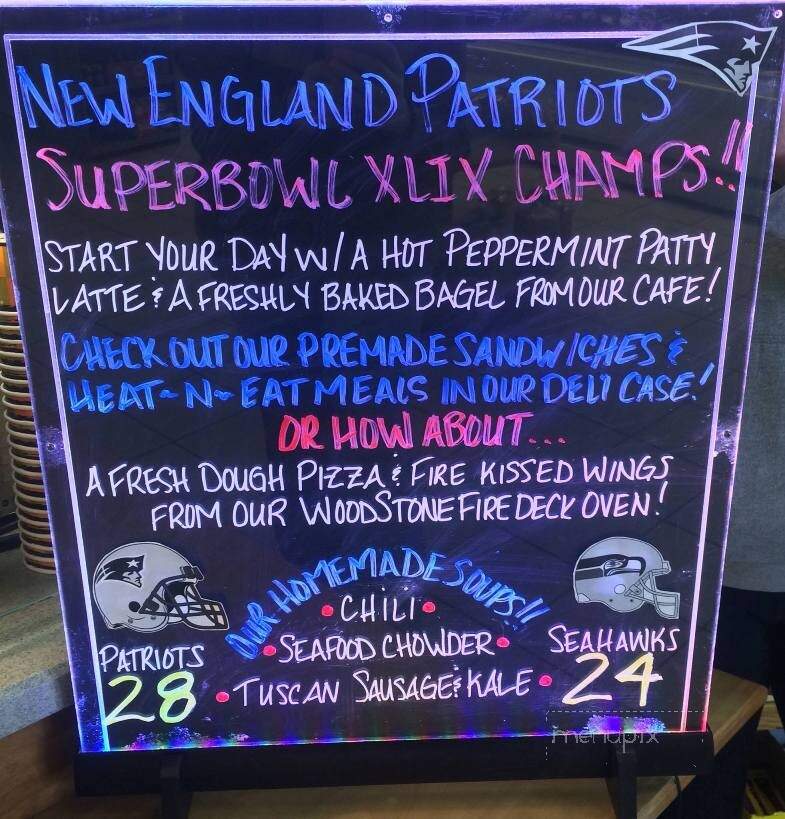 NEW ENGLAND PATRIOTS
SUPERBOWL XLIX CHAMPS!!
START YOUR DAY W/A HOT PEPPERMINT PATTY
LATTE & A FRESHLY BAKED BAGEL FROM OUR CAFE!
CHECK OUT OUR PREMADE SANDWICHES &
HEAT~N~EAT MEALS IN OUR DELI CASE!
OR HOW ABOUT...
A FRESH DOUGH PIZZA & FIRE KISSED WINGS
FROM OUR WOODSTONE FIRE DECK OVEN!
OUR HOMEMADE SOUPS!!
• CHILI •
• SEAFOOD CHOWDER •
• TUSCAN SAUSAGE & KALE •
PATRIOTS
28
SEAHAWKS
24
menupix